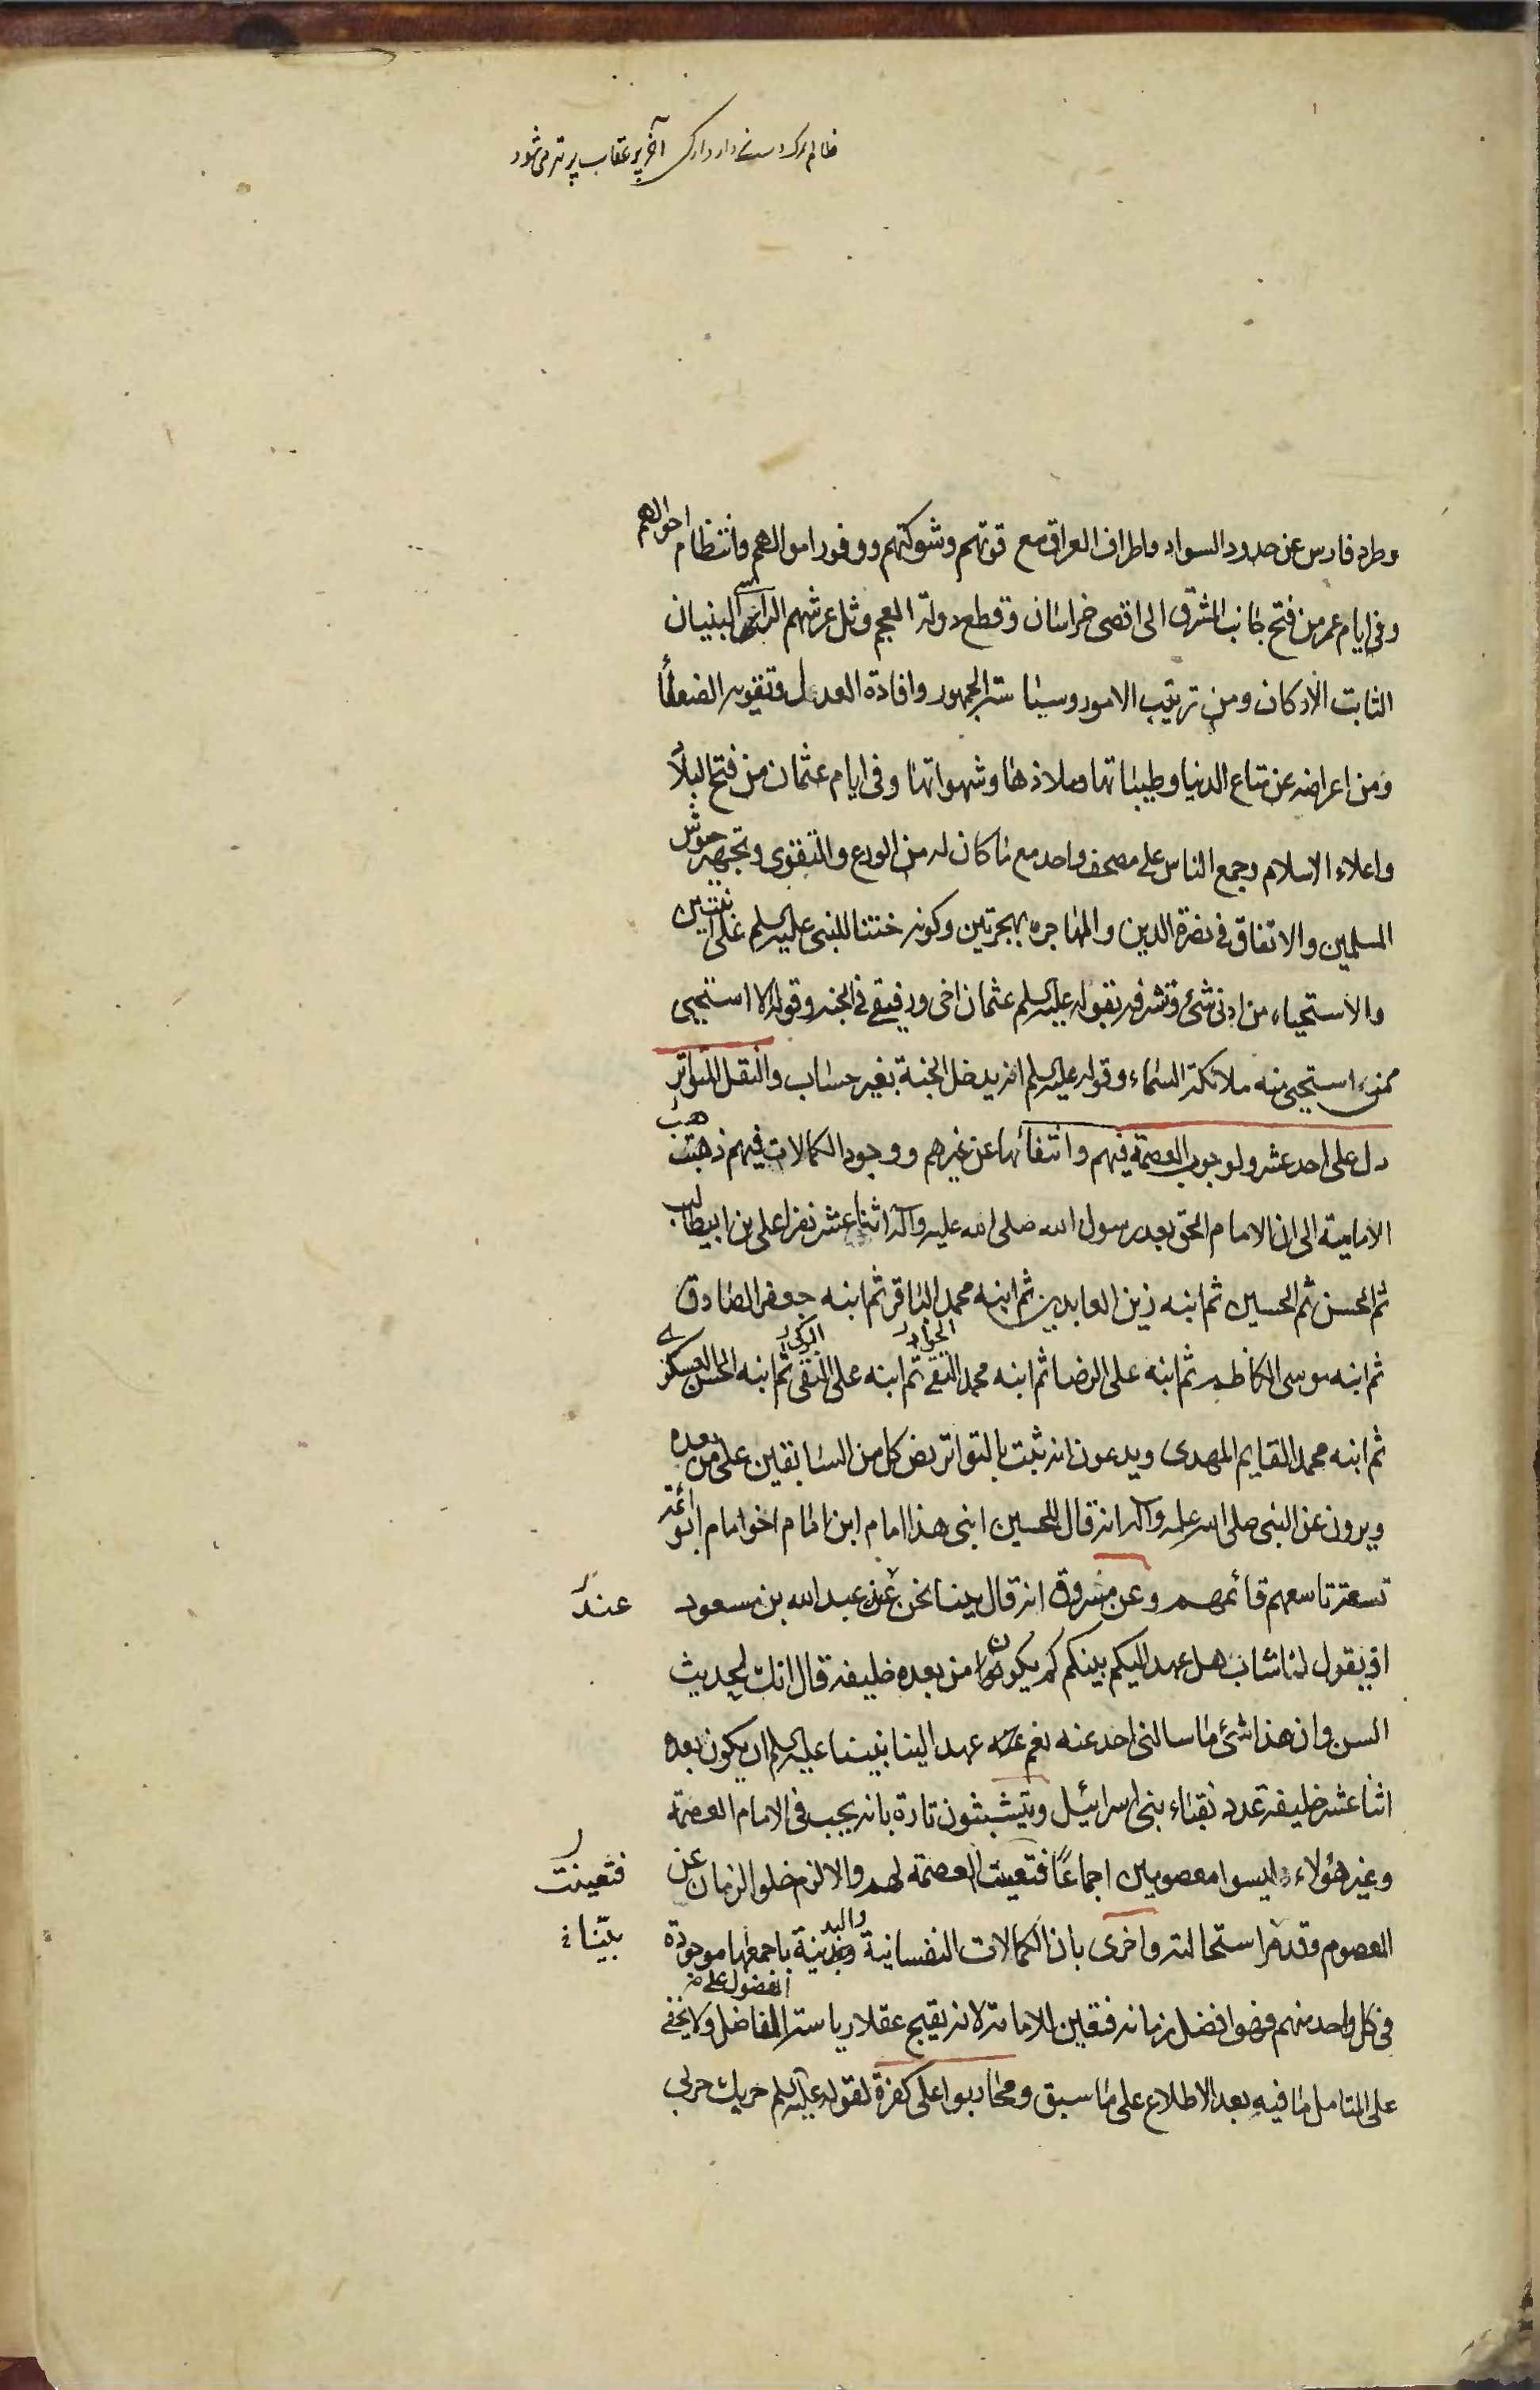 ظالم مرد دارد آخر پر عقاب پر تیر میشود
وطرد فارس عن حدود السواد واطراف العراق مع قوتهم وشوكتهم ووفور اموالهم وانتظام احوالهم
وفى ايام عمر من فتح جانب المشرق الى اقصى خراسان وقطع دولة العجم وثل عرشهم الراسى البنيان
الثابت الاركان ومن ترتيب الامور وسياسة الجمهور وافادة العدل وتقوية الضعفا
ومن اعراضه عن متاع الدنيا وطيباتها وملاذها وشهواتها وفى ايام عثمان من فتح البلاد
واعلاء الاسلام وجمع الناس على مصحف واحد مع ما كان له من الورع والتقوى وتجهيز جيوش
المسلمين والاتفاق فى نصرة الدين والمهاجره هجرتين وكونه ختنا للنبى عليه السلم على ابنتين
والاستحياء من ادنى شئ وتشرفه بقوله عليه السلم عثمان اخى ورفيقى فى الجنه وقوله الا استحيى
ممن استحيى منه ملائكة السماء وقوله عليه السلم انه يدخل الجنة بغير حساب والنقل المتواتر
دل على احد عشر ولوجوب العصمة فيهم وانتفائها عن غيرهم ووجود الكمالات فيهم ذهبت
الامامية الى ان الامام الحق بعد رسول الله صلى الله عليه وآله اثنا عشر نفرا على بن ابيطالب
ثم الحسن ثم الحسين ثم ابنه زين العابدين ثم ابنه محمد الباقر ثم ابنه جعفر الصادق
ثم ابنه موسى الكاظم ثم ابنه على الرضا ثم ابنه محمد التقى الجواد ثم ابنه على النقى الزكى ثم ابنه الحسن العسكرى
ثم ابنه محمد القايم المهدى ويدعون انه ثبت بالتواتر نص كل من السابقين على من بعده
ويرون عن النبى صلى الله عليه وآله انه قال للحسين ابنى هذا امام ابن امام اخو امام ابو ائمة
تسعة تاسعهم قائمهم وعن مسروق انه قال بينا نحن عن عبد الله بن مسعود
عند
اذ يقول لنا شاب هل عهد اليكم نبيكم كم يكون من بعده خليفه قال انك لحديث
السن وان هذا شئ ما سالنى احد عنه نعم عهد الينا نبينا عليه السلم ان يكون بعده
اثنا عشر خليفة عدد نقباء بنى اسرائيل ويتشبثون تارة بانه يجب فى الامام العصمة
وغير هؤلاء ليسوا معصومين اجماعًا فتعينت العصمة لهم والا لزم خلو الزمان عن
فتعينت
المعصوم وقد مر استحالته واخرى بان الكمالات النفسانية والبدنية باجمعها موجودة
بيناء
فى كل واحد منهم فهو افضل زمانه فتعين للامامة لانه يقبح عقلا رياسة المفضول على الفاضل ولا يخفى
على المتامل ما فيه بعد الاطلاع على ما سبق ومحاربوا على كفرة لقوله عليه السلم حربك حربى